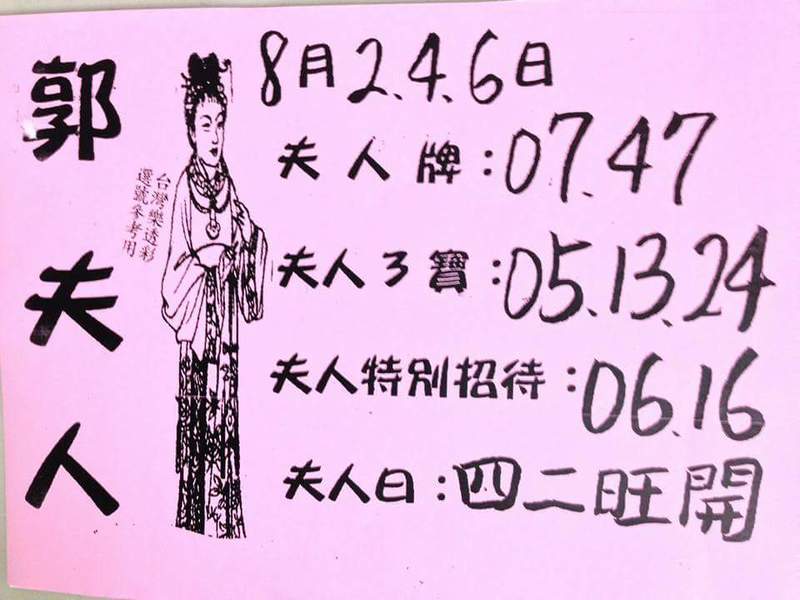 郭夫人
台灣樂透彩
選號參考用
8月2.4.6日
夫人牌:07.47
夫人3寶:05.13.24
夫人特別招待:06.16
夫人日:四二旺開